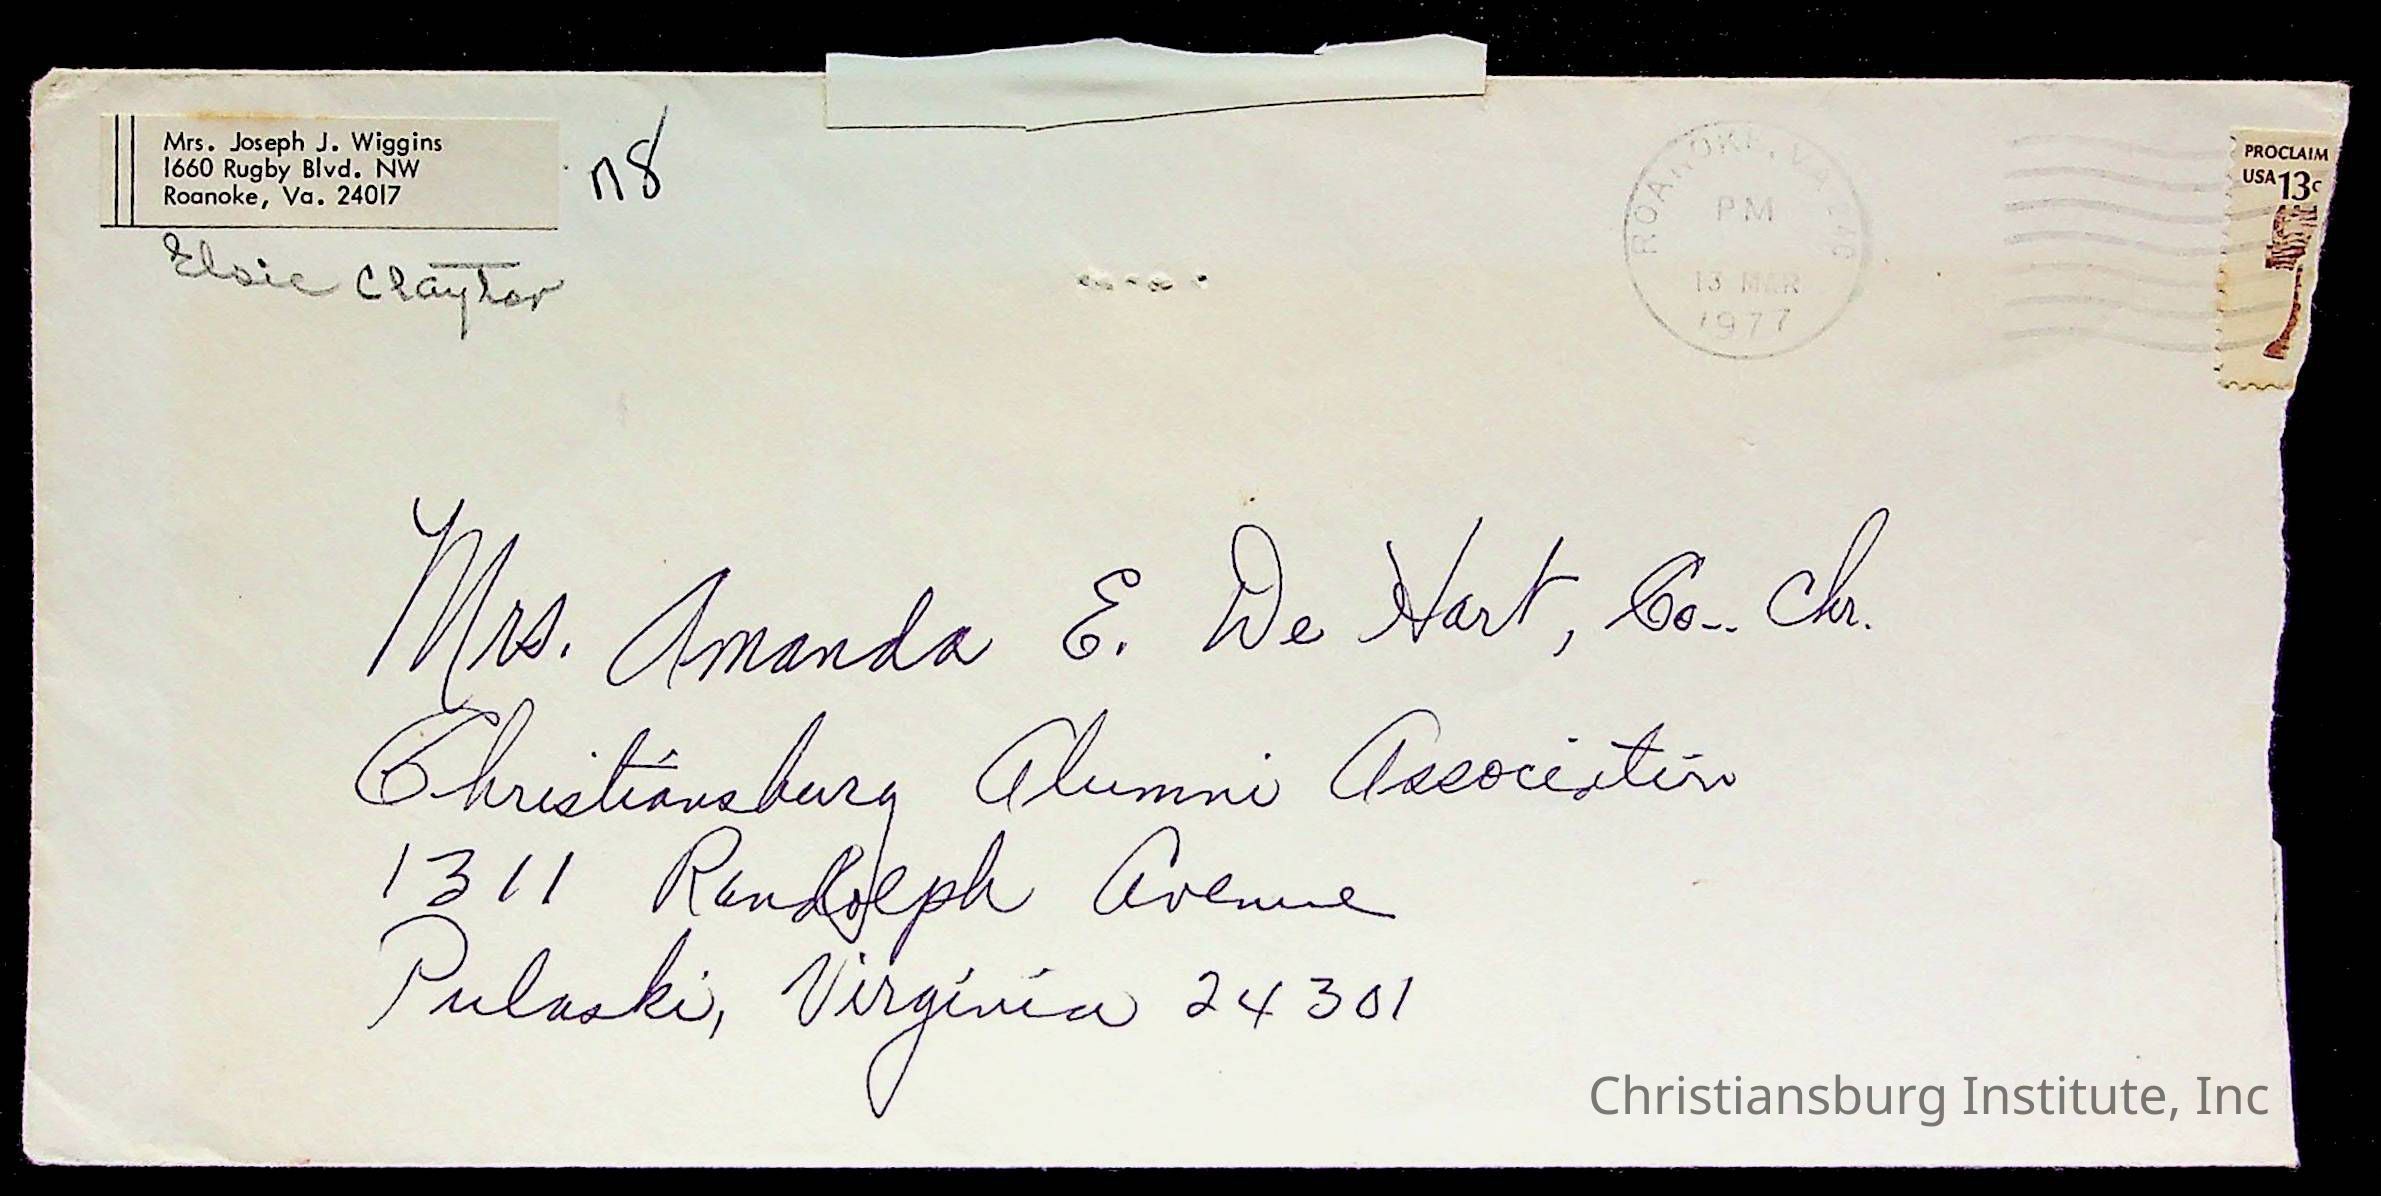 Mrs. Joseph J. Wiggins
1660 Rugby Blvd. NW
Roanoke, Va. 24017
n8
Elsie Claytor
ROANOKE, VA
PM
13 MAR
1977
PROCLAIM
USA 13c
Mrs. Amanda E. De Hart, Co-Chr.
Christiansburg Alumni Association
1311 Randolph Avenue
Pulaski, Virginia 24301
Christiansburg Institute, Inc